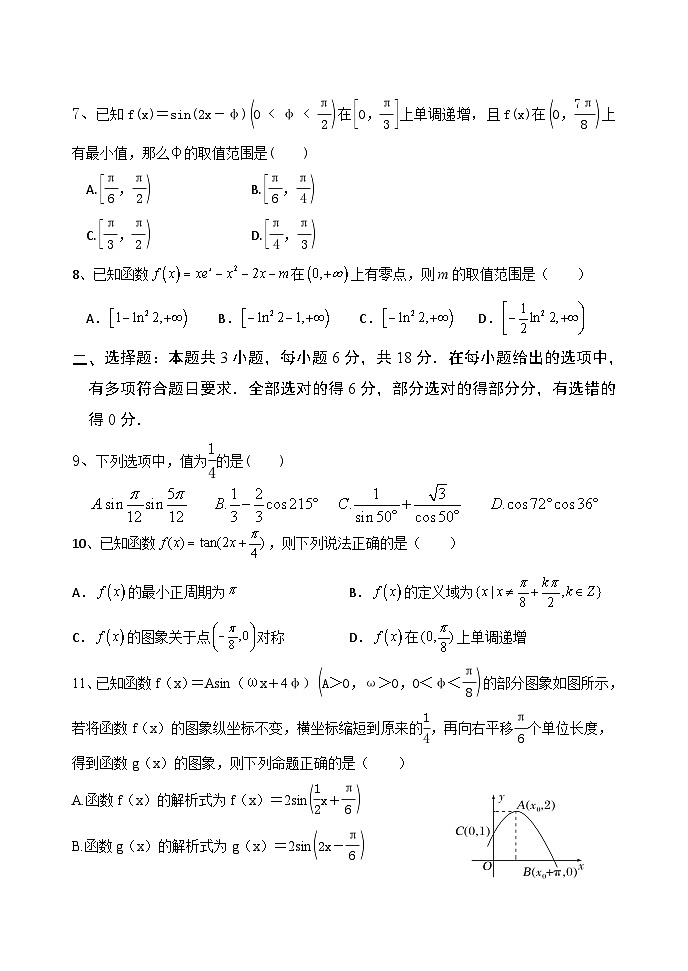 7、已知f(x)=sin(2x-φ)(0 < φ < π/2)在[0,π/3]上单调递增,且f(x)在(0,7π/8)上
有最小值,那么φ的取值范围是(  )
A.[π/6,π/2)  B.[π/6,π/4)
C.[π/3,π/2)  D.[π/4,π/3)
8、已知函数 f(x)=xeˣ-x²-2x-m在(0,+∞)上有零点,则m的取值范围是(  )
A.[1-ln²2,+∞)  B.[-ln²2-1,+∞)  C.[-ln²2,+∞)  D.[-1/2 ln²2,+∞)
二、选择题:本题共3小题,每小题6分,共18分.在每小题给出的选项中,
有多项符合题目要求.全部选对的得6分,部分选对的得部分分,有选错的
得0分.
9、下列选项中,值为1/4的是(  )
A.sin π/12 sin 5π/12  B.1/3-2/3 cos215°  C.1/sin50°+√3/cos50°  D.cos72°cos36°
10、已知函数 f(x)=tan(2x+π/4),则下列说法正确的是(  )
A. f(x)的最小正周期为π  B. f(x)的定义域为{x|x≠π/8+kπ/2,k∈Z}
C. f(x)的图象关于点(-π/8,0)对称  D. f(x)在(0,π/8)上单调递增
11、已知函数f(x)=Asin(ωx+4φ)(A>0,ω>0,0<φ<π/8)的部分图象如图所示,
若将函数f(x)的图象纵坐标不变,横坐标缩短到原来的1/4,再向右平移π/6个单位长度,
得到函数g(x)的图象,则下列命题正确的是(  )
A.函数f(x)的解析式为f(x)=2sin(1/2x+π/6)
B.函数g(x)的解析式为g(x)=2sin(2x-π/6)
y
A(x₀,2)
C(0,1)
O
B(x₀+π,0)
x